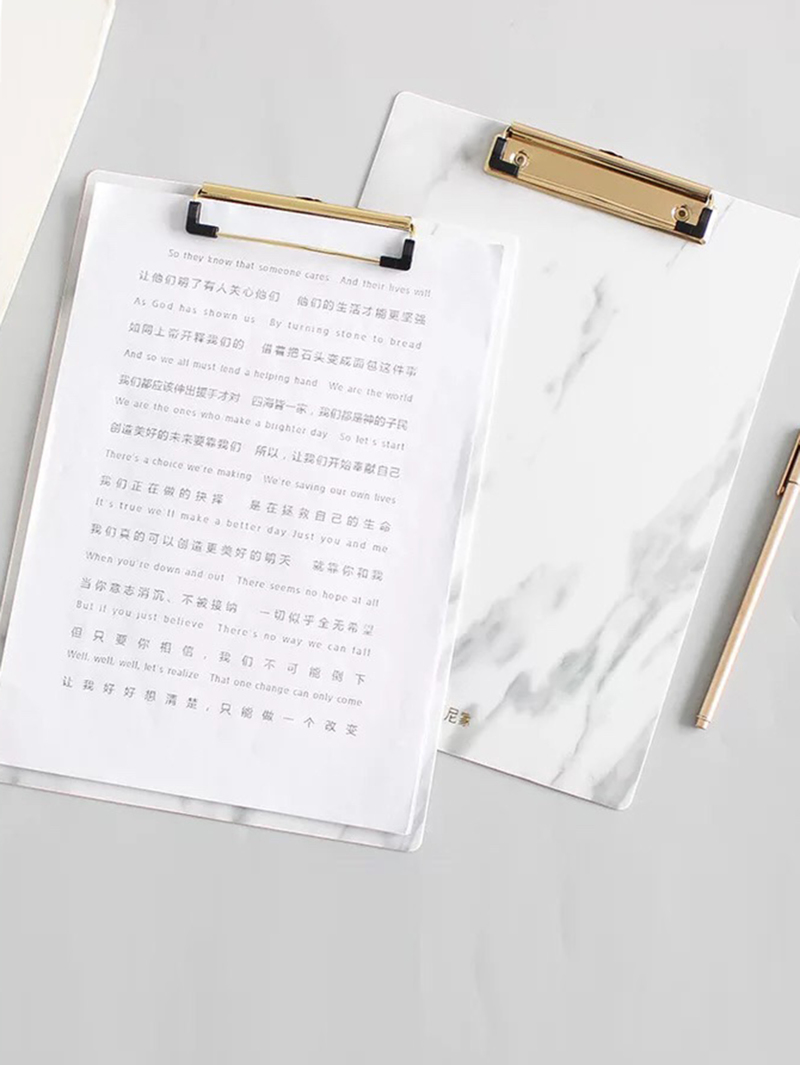 So they know that someone cares And their lives will
让他们明了有人关心他们 他们的生活才能更坚强
As God has shown us By turning stone to bread
如同上帝开释我们的 借着把石头变成面包这件事
And so we all must lend a helping hand We are the world
我们都应该伸出援手才对 四海皆一家，我们都是神的子民
We are the ones who make a brighter day So let's start
创造美好的未来要靠我们 所以，让我们开始奉献自己
There's a choice we're making We're saving our own lives
我们正在做的抉择 是在拯救自己的生命
It's true we'll make a better day Just you and me
我们真的可以创造更美好的明天 就靠你和我
When you're down and out There seems no hope at all
当你意志消沉、不被接纳 一切似乎全无希望
But if you just believe There's no way we can fall
但只要你相信，我们不可能倒下
Well, well, well, let's realize That one change can only come
让我好好想清楚，只能做一个改变
尼家